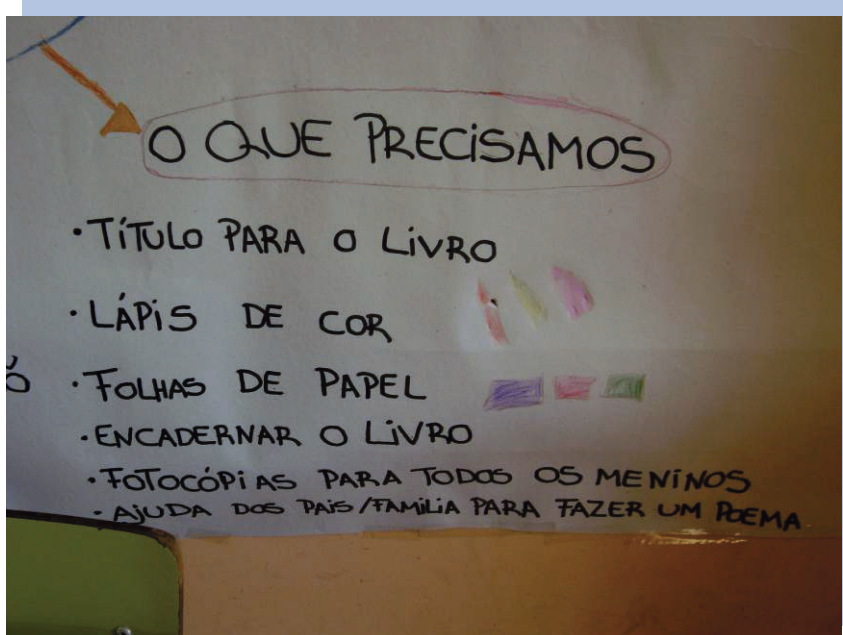 O QUE PRECISAMOS
· TÍTULO PARA O LIVRO
· LÁPIS DE COR
· FOLHAS DE PAPEL
· ENCADERNAR O LIVRO
· FOTOCÓPIAS PARA TODOS OS MENINOS
· AJUDA DOS PAIS / FAMILIA PARA FAZER UM POEMA